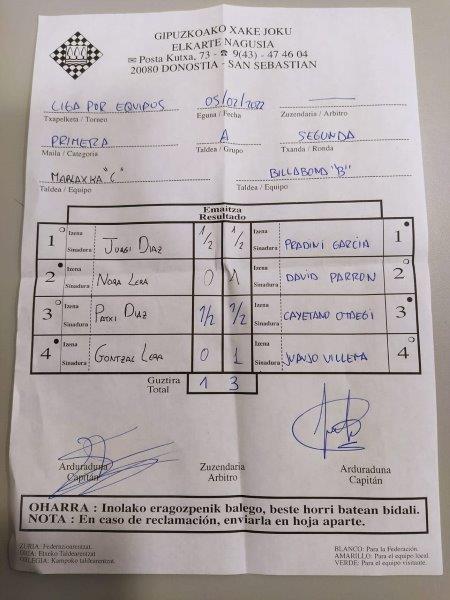 GIPUZKOAKO XAKE JOKU
ELKARTE NAGUSIA
✉ Posta Kutxa, 73 - ☎ 9(43) - 47 46 04
20080 DONOSTIA - SAN SEBASTIAN
LIGA POR EQUIPOS 05/02/2022
Txapelketa / Torneo Eguna / Fecha Zuzendaria / Arbitro
PRIMERA A SEGUNDA
Maila / Categoria Taldea / Grupo Txanda / Ronda
"C" BILLABONA "B"
Taldea / Equipo Taldea / Equipo
Emaitza
Resultado
1 Izena Sinadura JURGI DIAZ 1/2 1/2 PRADINI GARCIA 1
2 Izena Sinadura NORA LERA 0 1 DAVID PARRON 2
3 Izena Sinadura PATXI DIAZ 1/2 1/2 CAYETANO OTAEGI 3
4 Izena Sinadura GONTZAL LERA 0 1 JUANJO VILLENA 4
Guztira
Total 1 3
Arduraduna Zuzendaria Arduraduna
Capitán Arbitro Capitán
OHARRA : Inolako eragozpenik balego, beste horri batean bidali.
NOTA : En caso de reclamación, enviarla en hoja aparte.
ZURIA: Federazioarentzat. BLANCO: Para la Federación.
ORIA: Etxeko Taldearentzat. AMARILLO: Para el equipo local.
ORLEGIA: Kanpoko taldearentzat. VERDE: Para el equipo visitante.